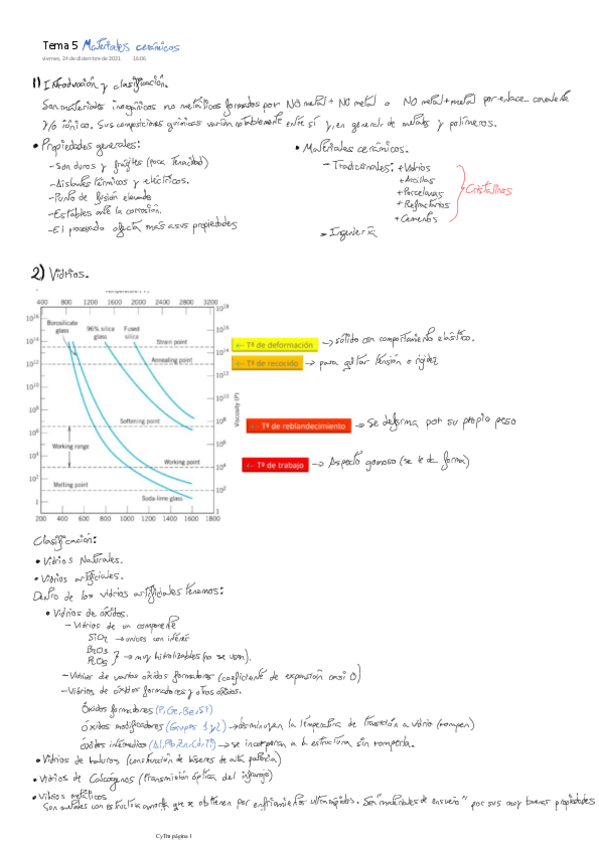 Tema 5 Materiales cerámicos
viernes, 24 de diciembre de 2021 16:06
1) Introducción y clasificación.
Son materiales inorgánicos no metálicos formados por NO metal + NO metal o NO metal + metal por enlace covalente
y/o iónico. Sus composiciones químicas varían notablemente entre sí y, en general, de metales y polímeros.
• Propiedades generales:
- Son duros y frágiles (poca tenacidad)
- Aislantes térmicos y eléctricos.
- Punto de fusión elevado
- Estables ante la corrosión.
- El procesado afecta más a sus propiedades
• Materiales cerámicos.
- Tradicionales: + Vidrios
+ Arcillas
+ Porcelanas
+ Refractarios
+ Cementos
Cristalinos
- Ingeniería
2) Vidrios.
400 800 1200 1600 2000 2400 2800 3200
Borosilicate glass
96% silica glass
Fused silica
Strain point
Annealing point
Softening point
Working range
Working point
Melting point
Soda-lime glass
Viscosity (P)
200 400 600 800 1000 1200 1400 1600 1800
← Tª de deformación → sólido con comportamiento elástico.
← Tª de recocido → para quitar tensión o rigidez
← Tª de reblandecimiento → Se deforma por su propio peso
← Tª de trabajo → Aspecto gomoso (se le de forma)
Clasificación:
• Vidrios Naturales.
• Vidrios artificiales.
Dentro de los vidrios artificiales tenemos:
• Vidrios de óxidos.
- Vidrios de un componente
SiO2 → únicos con interés
B2O3
P2O5 } → muy hidrolizables (no se usan).
- Vidrios de varios óxidos formadores (coeficiente de expansión casi 0)
- Vidrios de óxidos formadores y otros óxidos.
Óxidos formadores
Óxidos modificadores (Grupos 1 y 2) → disminuyen la temperatura de transición a vidrio (rompen)
óxidos intermedios → se incorporan a la estructura sin romperla.
• Vidrios de haluros (construcción de láseres de alta potencia)
• Vidrios de Calcógenos (Transmisión óptica del infrarrojo)
• Vidrios metálicos
Son metales con estructura amorfa que se obtienen por enfriamientos ultrarrápidos. Son "materiales de ensueño" por sus muy buenas propiedades
CyTm página 1